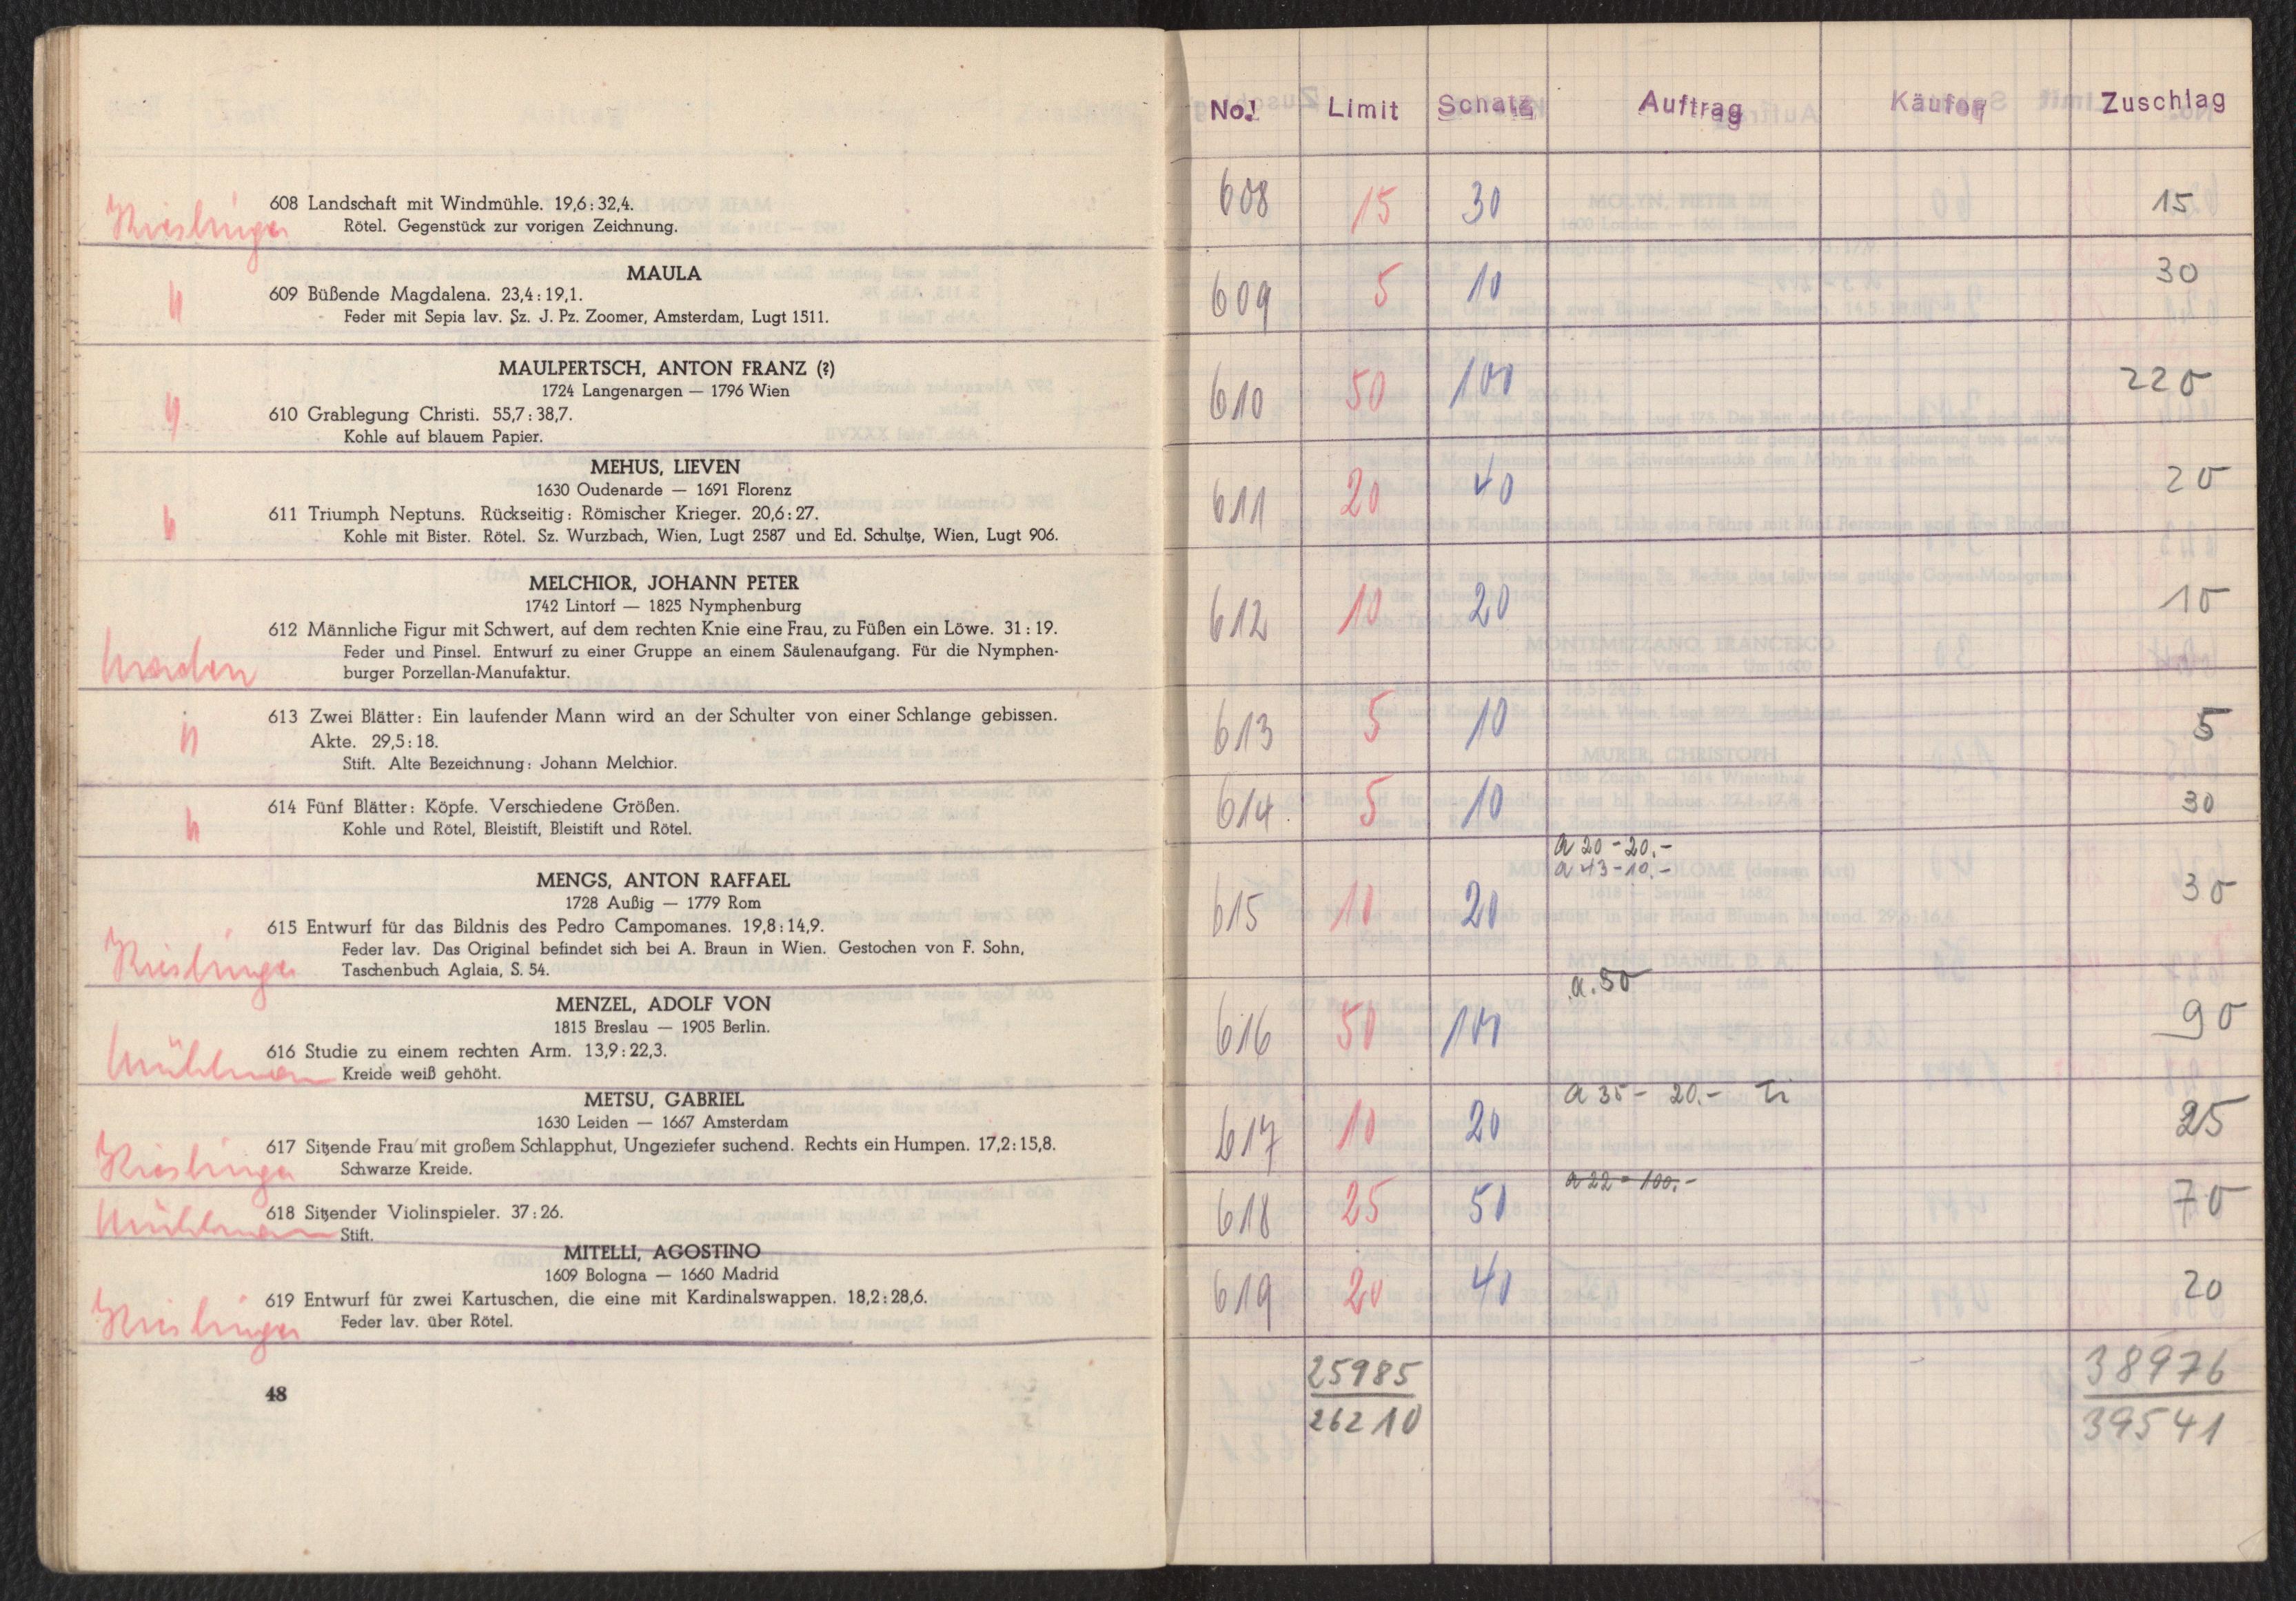 608 Landschaft mit Windmühle. 19,6 : 32,4.
Rötel. Gegenstück zur vorigen Zeichnung.
MAULA
609 Büßende Magdalena. 23,4 : 19,1.
Feder mit Sepia lav. Sz. J. Pz. Zoomer, Amsterdam, Lugt 1511.
MAULPERTSCH, ANTON FRANZ (?)
1724 Langenargen — 1796 Wien
610 Grablegung Christi. 55,7 : 38,7.
Kohle auf blauem Papier.
MEHUS, LIEVEN
1630 Oudenarde — 1691 Florenz
611 Triumph Neptuns. Rückseitig: Römischer Krieger. 20,6 : 27.
Kohle mit Bister. Rötel. Sz. Wurzbach, Wien, Lugt 2587 und Ed. Schultze, Wien, Lugt 906.
MELCHIOR, JOHANN PETER
1742 Lintorf — 1825 Nymphenburg
612 Männliche Figur mit Schwert, auf dem rechten Knie eine Frau, zu Füßen ein Löwe. 31 : 19.
Feder und Pinsel. Entwurf zu einer Gruppe an einem Säulenaufgang. Für die Nymphen-
burger Porzellan-Manufaktur.
613 Zwei Blätter: Ein laufender Mann wird an der Schulter von einer Schlange gebissen.
Akte. 29,5 : 18.
Stift. Alte Bezeichnung: Johann Melchior.
614 Fünf Blätter: Köpfe. Verschiedene Größen.
Kohle und Rötel, Bleistift, Bleistift und Rötel.
MENGS, ANTON RAFFAEL
1728 Außig — 1779 Rom
615 Entwurf für das Bildnis des Pedro Campomanes. 19,8 : 14,9.
Feder lav. Das Original befindet sich bei A. Braun in Wien. Gestochen von F. Sohn,
Taschenbuch Aglaia, S. 54.
MENZEL, ADOLF VON
1815 Breslau — 1905 Berlin.
616 Studie zu einem rechten Arm. 13,9 : 22,3.
Mühlmann
Kreide weiß gehöht.
METSU, GABRIEL
1630 Leiden — 1667 Amsterdam
617 Sitzende Frau mit großem Schlapphut, Ungeziefer suchend. Rechts ein Humpen. 17,2 : 15,8.
Schwarze Kreide.
618 Sitzender Violinspieler. 37 : 26.
Mühlmann
Stift.
MITELLI, AGOSTINO
1609 Bologna — 1660 Madrid
619 Entwurf für zwei Kartuschen, die eine mit Kardinalswappen. 18,2 : 28,6.
Feder lav. über Rötel.
48
No! Limit Schatz Auftrag Käufer Zuschlag
608 15 30 15
609 5 10 30
610 50 100 220
611 20 40 20
612 10 20 10
613 5 10 5
614 5 10 30
a 20 - 20.-
a 43 - 10.-
615 10 20 30
a. 50
616 50 100 90
a 35 - 20.-
617 10 20 25
a 22 - 100.-
618 25 50 70
619 20 40 20
25985 38976
26210 39541